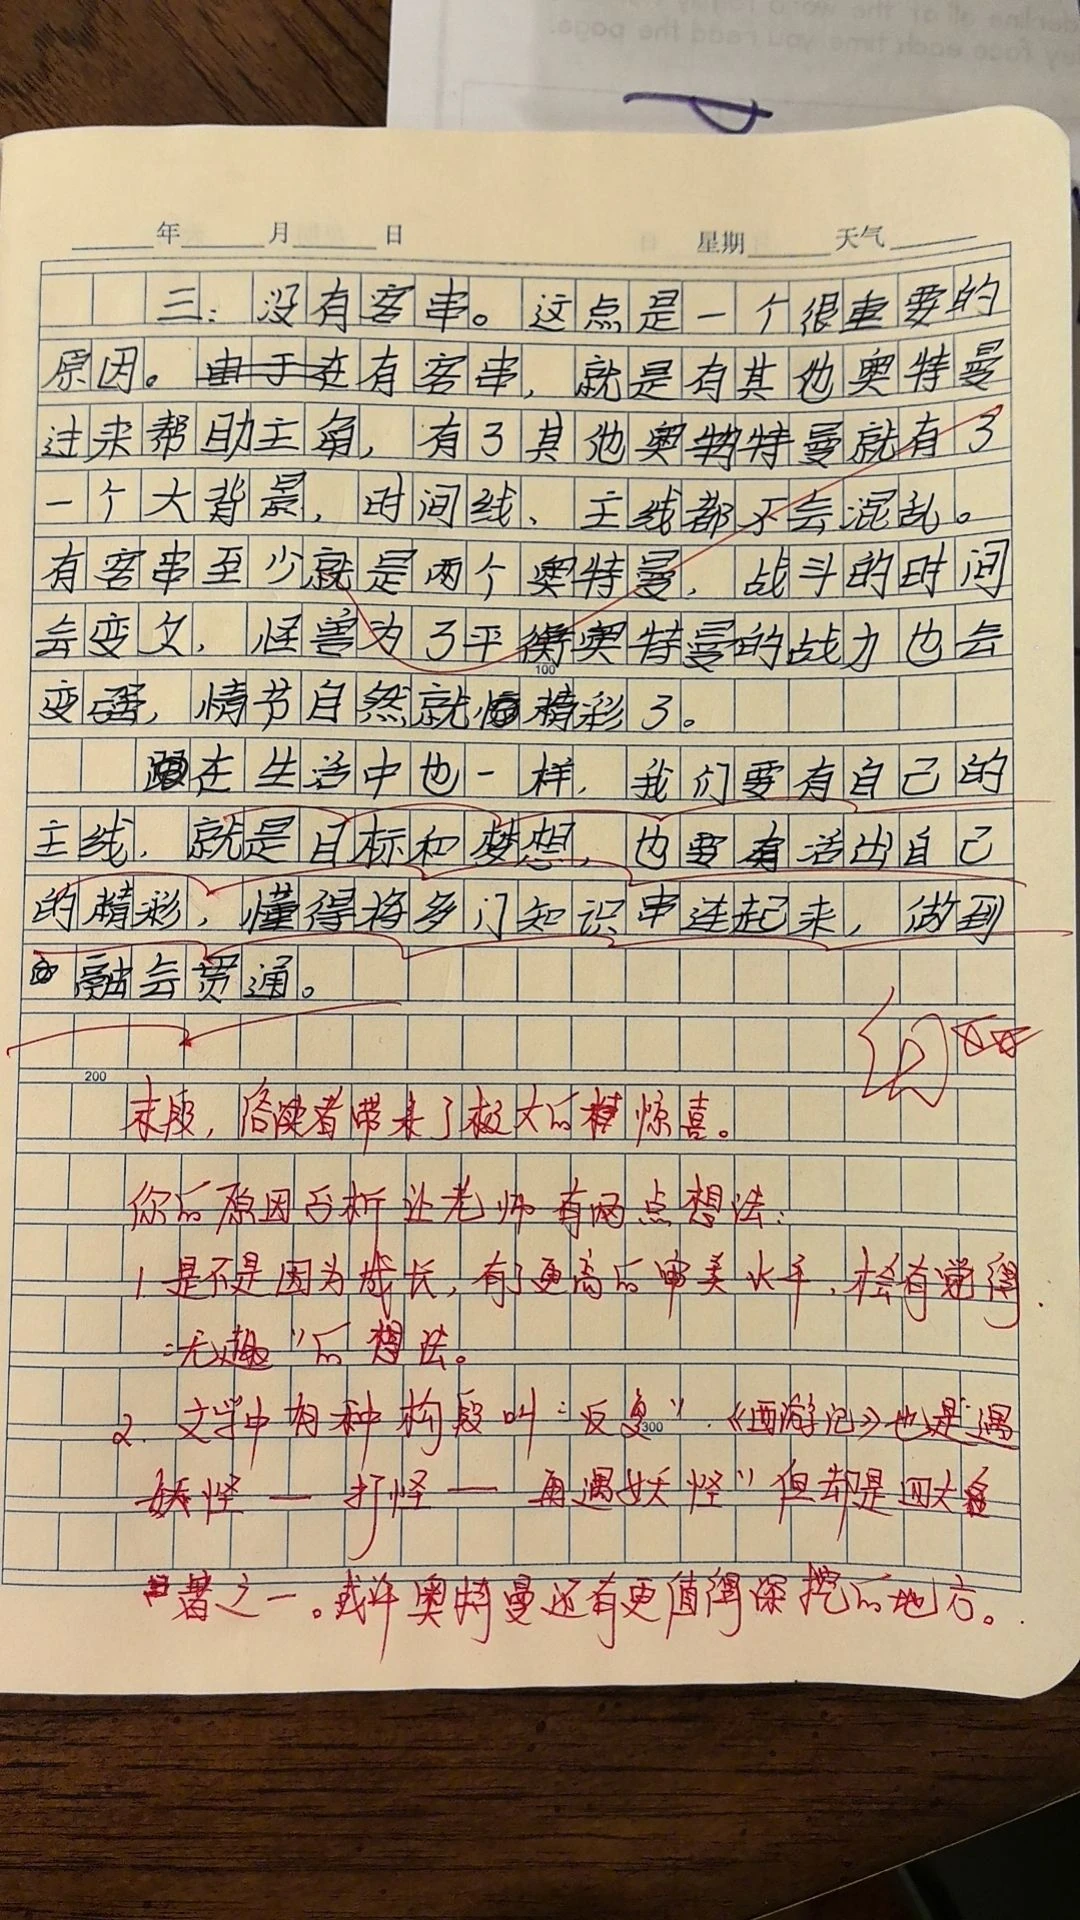 年 月 日 星期 天气
三：没有客串。这点是一个很重要的
原因。由于在有客串，就是有其他奥特曼
过来帮助主角，有了其他奥特曼就有了
一个大背景，时间线、主线都不会混乱。
有客串至少就是两个奥特曼，战斗的时间
会变久，怪兽为了平衡奥特曼的战力也会
100
变强，情节自然就精彩了。
在生活中也一样，我们要有自己的
主线，就是目标和梦想，也要有活出自己
的精彩，懂得将多门知识串连起来，做到
融会贯通。
200
末段，给读者带来了极大的惊喜。
你的原因分析让老师有两点想法：
1. 是不是因为成长，有了更高的审美水平，才会有觉得
“无趣”的想法。
2. 文学中有种构段叫“反复”.《西游记》也是“遇
300
妖怪—打怪—再遇妖怪”但却是四大名
著之一。或许奥特曼还有更值得深挖的地方。